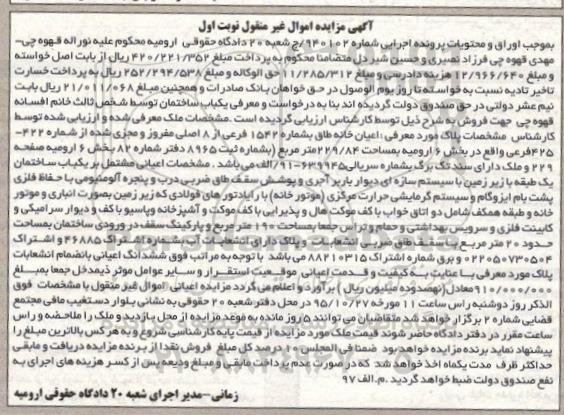 آگهی مزایده اموال غیر منقول نوبت اول
بموجب اوراق و محتویات پرونده اجرایی شماره ۹۴۰۱۰۲/ج شعبه ۲۰ دادگاه حقوقی ارومیه محکوم علیه نوراله قهوه چی-
مهدی قهوه چی فرزاد نصیری و حسین شیر دل متضامنا محکوم به پرداخت مبلغ ۴۲۰/۲۲۱/۳۵۲ ریال از بابت اصل خواسته
و مبلغ ۱۲/۹۶۶/۶۴۰ هزینه دادرسی و مبلغ ۱۱/۲۸۵/۳۱۲ حق الوکاله و مبلغ ۲۵۲/۲۹۴/۵۳۸ ریال به پرداخت خسارت
تاخیر تادیه نسبت به خواسته تا روز یوم الوصول در حق خواهان بانک صادرات و همچنین مبلغ ۲۱/۰۱۱/۰۶۸ ریال بابت
نیم عشر دولتی در حق صندوق دولت گردیده اند بنا به درخواست و معرفی یکباب ساختمان توسط شخص ثالث خانم افسانه
قهوه چی جهت فروش به شرح ذیل توسط کارشناس ارزیابی گردیده است .مشخصات ملک معرفی شده و ارزیابی شده توسط
کارشناس مشخصات پلاک مورد معرفی : اعیان خانه طاق بشماره ۱۵۴۲ فرعی از ۸ اصلی مفروز و مجزی شده از شماره ۴۲۲-
۴۲۵ فرعی واقع در بخش ۶ ارومیه بمساحت ۲۲۹/۸۴ متر مربع (بشماره ثبت ۸۹۶۵ دفتر شماره ۸۲ بخش ۶ ارومیه صفحه
۲۲۹ و ملک دارای سند تک برگ بشماره سریالی ۶۳۹۹۴۵-۹۱/الف می باشد . مشخصات اعیانی مشتمل بر یکباب ساختمان
یک طبقه با زیر زمین با سیستم سازه ای دیوار باربر آجری و پوشش سقف طاق ضربی درب و پنجره آلومنیومی با حفاظ فلزی
پشت بام ایزوگام و سیستم گرمایشی حرارت مرکزی (موتور خانه) با رادیاتور های فولادی که زیر زمین بصورت انباری و موتور
خانه و طبقه همکف شامل دو اتاق خواب با کف موکت، هال و پذیرایی با کف موکت و آشپزخانه وپاسیو با کف و دیوار سرامیکی و
کابینت فلزی و سرویس بهداشتی و حمام و تراس جمعا بمساحت ۱۹۰ متر مربع و پارکینگ سقف در ورودی ساختمان بمساحت
حدود ۲۰ متر مربع با سقف طاق ضربی انشعابات و پلاک دارای انشعابات آب بشماره اشتراک ۴۶۸۸۵ و اشتراک
۰۲۲۰۵۰۷۳۰۵۰۴ و برق شماره اشتراک ۸۸۲۱۰۳۱۵ می باشد با توجه به مراتب فوق ششدانگ اعیانی بانضمام انشعابات
پلاک مورد معرفی با عنایت به کیفیت و قدمت اعیانی موقعیت استقرار و سایر عوامل موثر ذیمدخل جمعا بمبلغ
۹۱۰/۰۰۰/۰۰۰ معادل(نهصدوده میلیون ریال ) برآورد و اعلام می گردد مزایده اعیانی اموال غیر منقول با مشخصات فوق
الذکر روز دوشنبه راس ساعت ۱۱ مورخه ۹۵/۱۰/۲۷ در محل دفتر شعبه ۲۰ حقوقی به نشانی بلوار دستغیب مافی مجتمع
قضایی شماره ۲ برگزار خواهد شد متقاضیان می توانند ۵ روز مانده به موعد مزایده از محل بازدید و ملک را ملاحظه و راس
ساعت مقرر در دفتر دادگاه حاضر شوند قیمت ملک مورد مزایده از قیمت پایه کارشناسی شروع و به هر کس بالاترین مبلغ را
پیشنهاد نماید برنده مزایده خواهد بود ضمنا فی المجلس ۱۰ درصد کل مبلغ فروش نقدا از برنده مزایده دریافت و مابقی
حداکثر ظرف مدت یکماه اخذ خواهد شد که در صورت عدم پرداخت مابقی و مبلغ ودیعه پس از کسر هزینه های اجرای به
نفع صندوق دولت ضبط خواهد گردید .م.الف ۹۷
زمانی-مدیر اجرای شعبه ۲۰ دادگاه حقوقی ارومیه